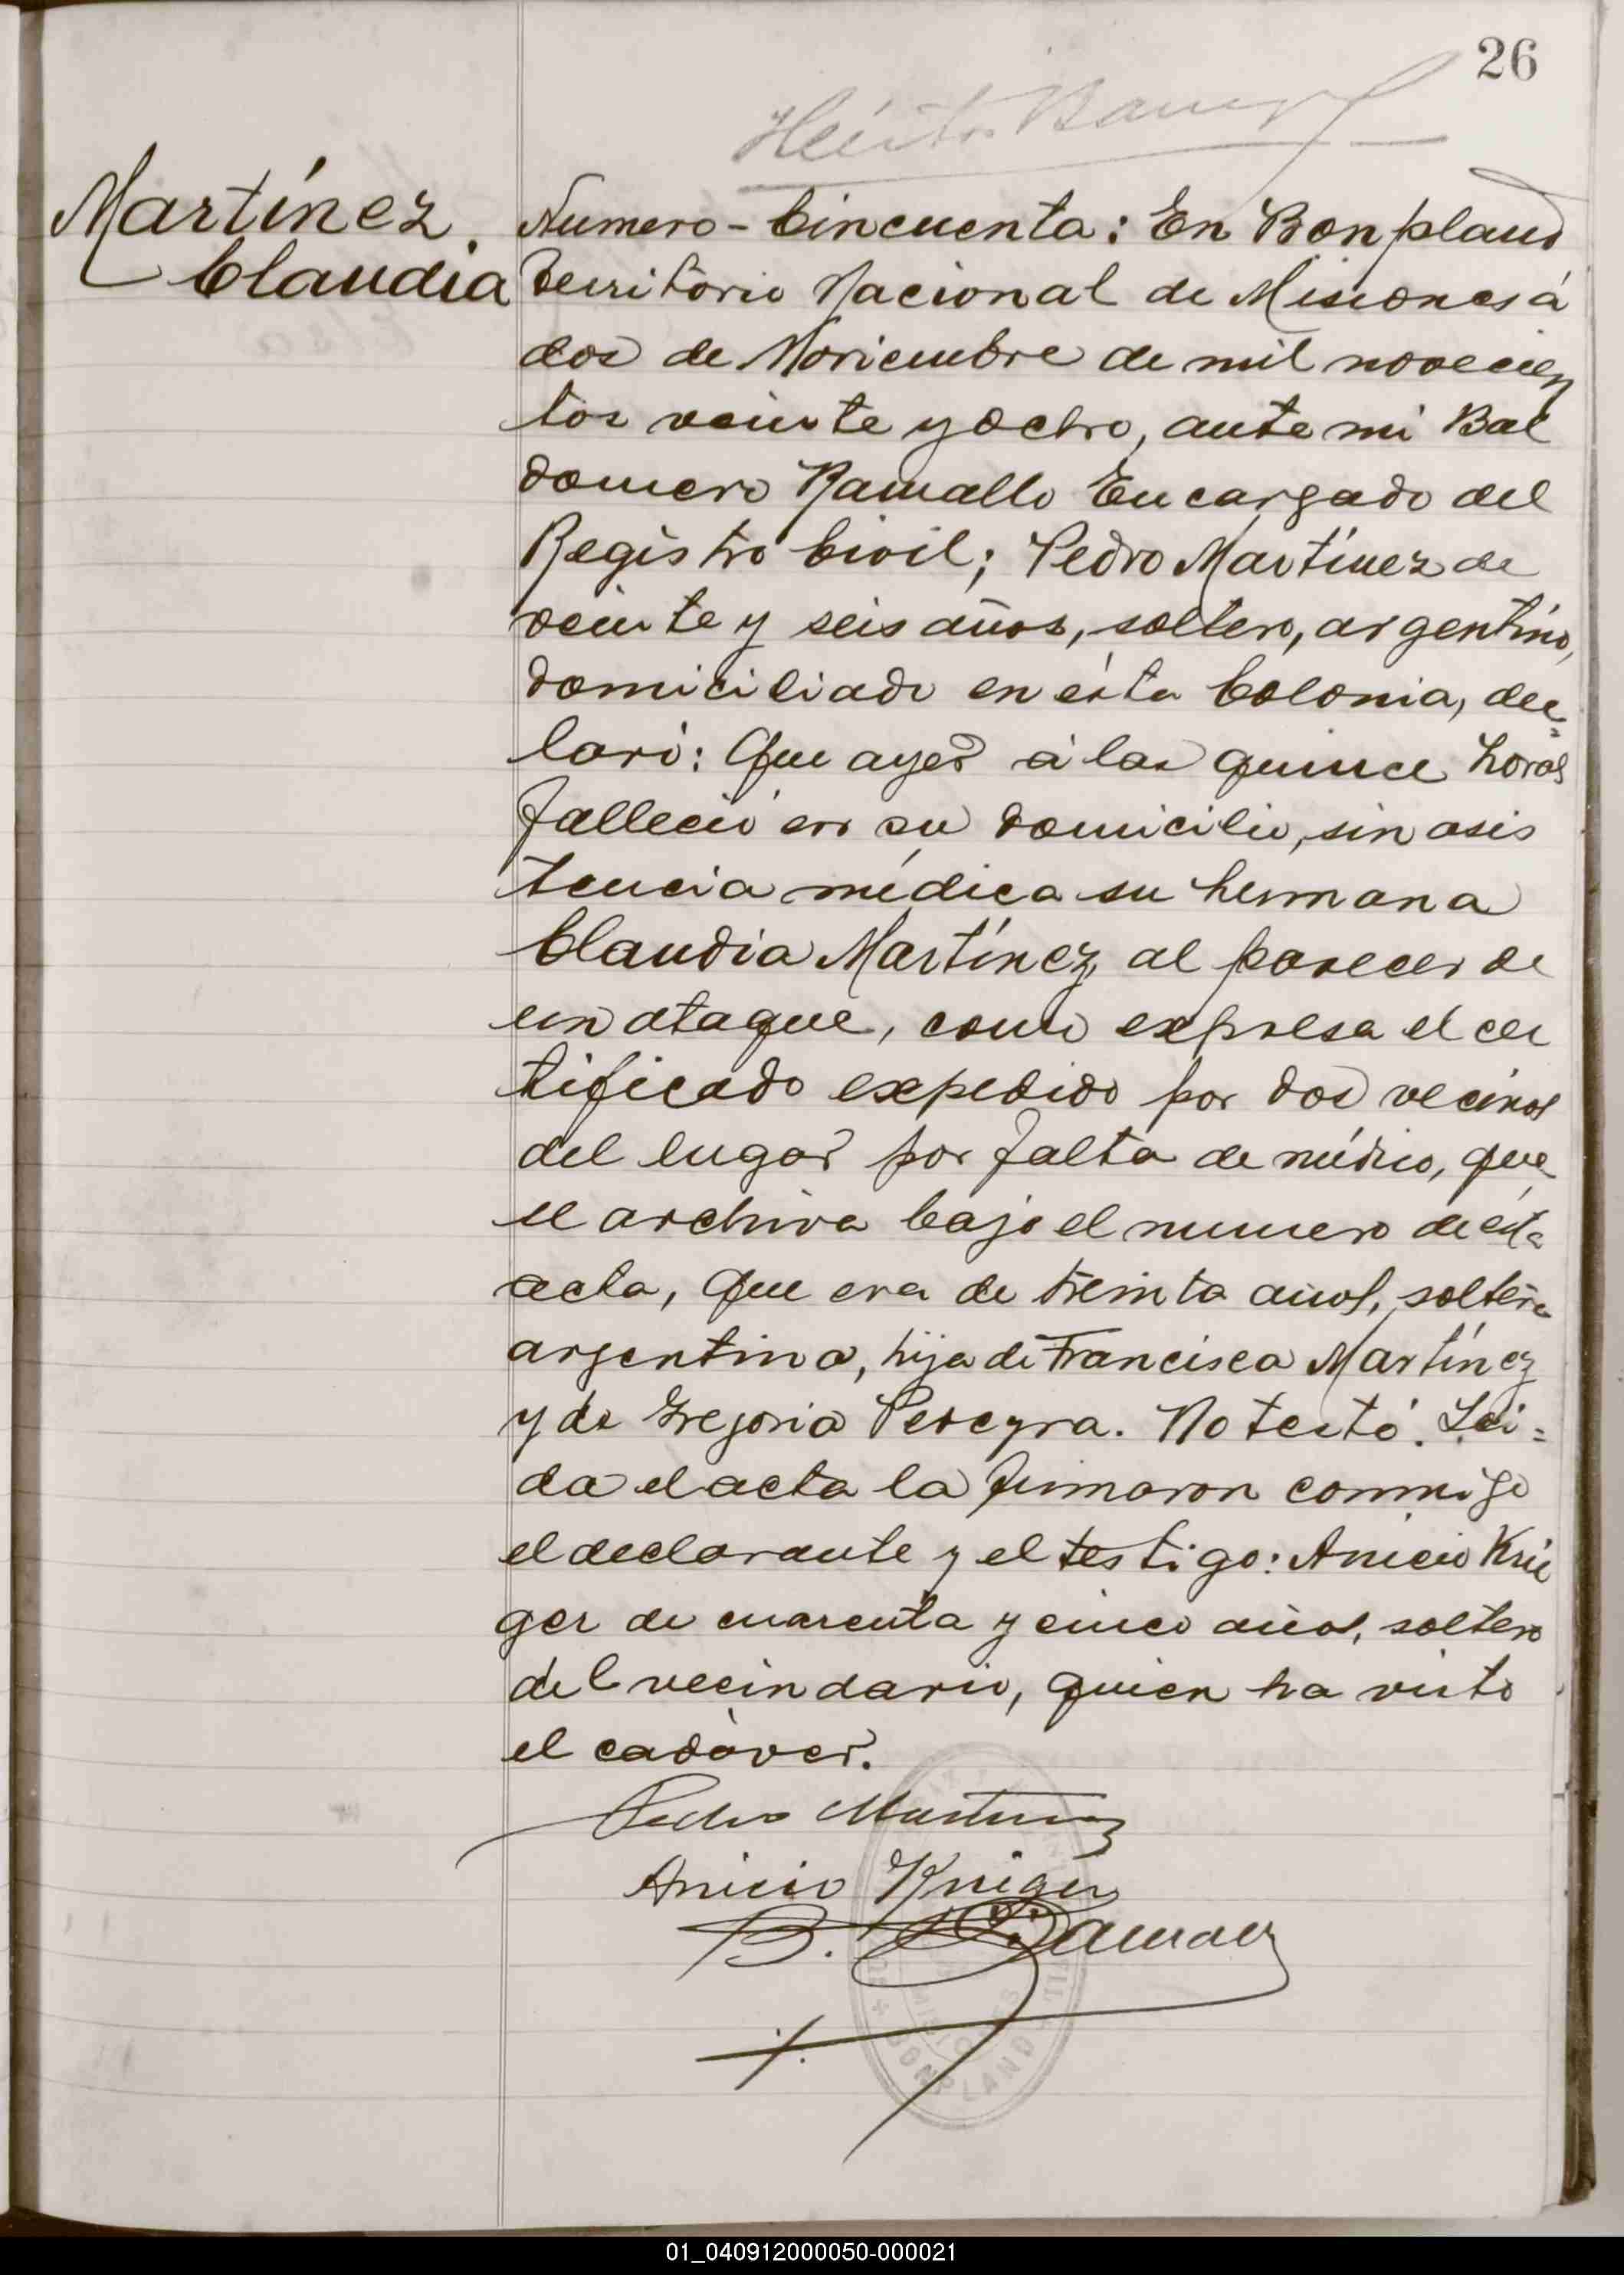 26
Martínez.
Claudia
Numero - Cincuenta: En Bonpland
Territorio Nacional de Misiones á
dos de Noviembre de mil novecien
tos veinte y ocho, ante mi Bal
domero Ramallo Encargado del
Registro Civil; Pedro Martínez de
veinte y seis años, soltero, argentino,
domiciliado en ésta Colonia, dec=
laró: Que ayer á las quince horas
falleció en su domicilio, sin asis
tencia médica su hermana
Claudia Martínez, al parecer de
un ataque, como expresa el cer
tificado expedido por dos vecinos
del lugar por falta de médico, que
se archiva bajo el numero de ésta
acta, Que era de treinta años, soltera
argentina, hija de Francisca Martínez
y de Gregoria Pereyra. No testó. Lei=
da el acta la firmaron conmigo
el declarante y el testigo: Anicio Krie
ger de cuarenta y cinco años, soltero
del vecindario, quien ha visto
el cadàver.
Pedro Martinez
Anicio Krieger
B. Ramallo
BONPLAND
MISIONES
01_040912000050-000021